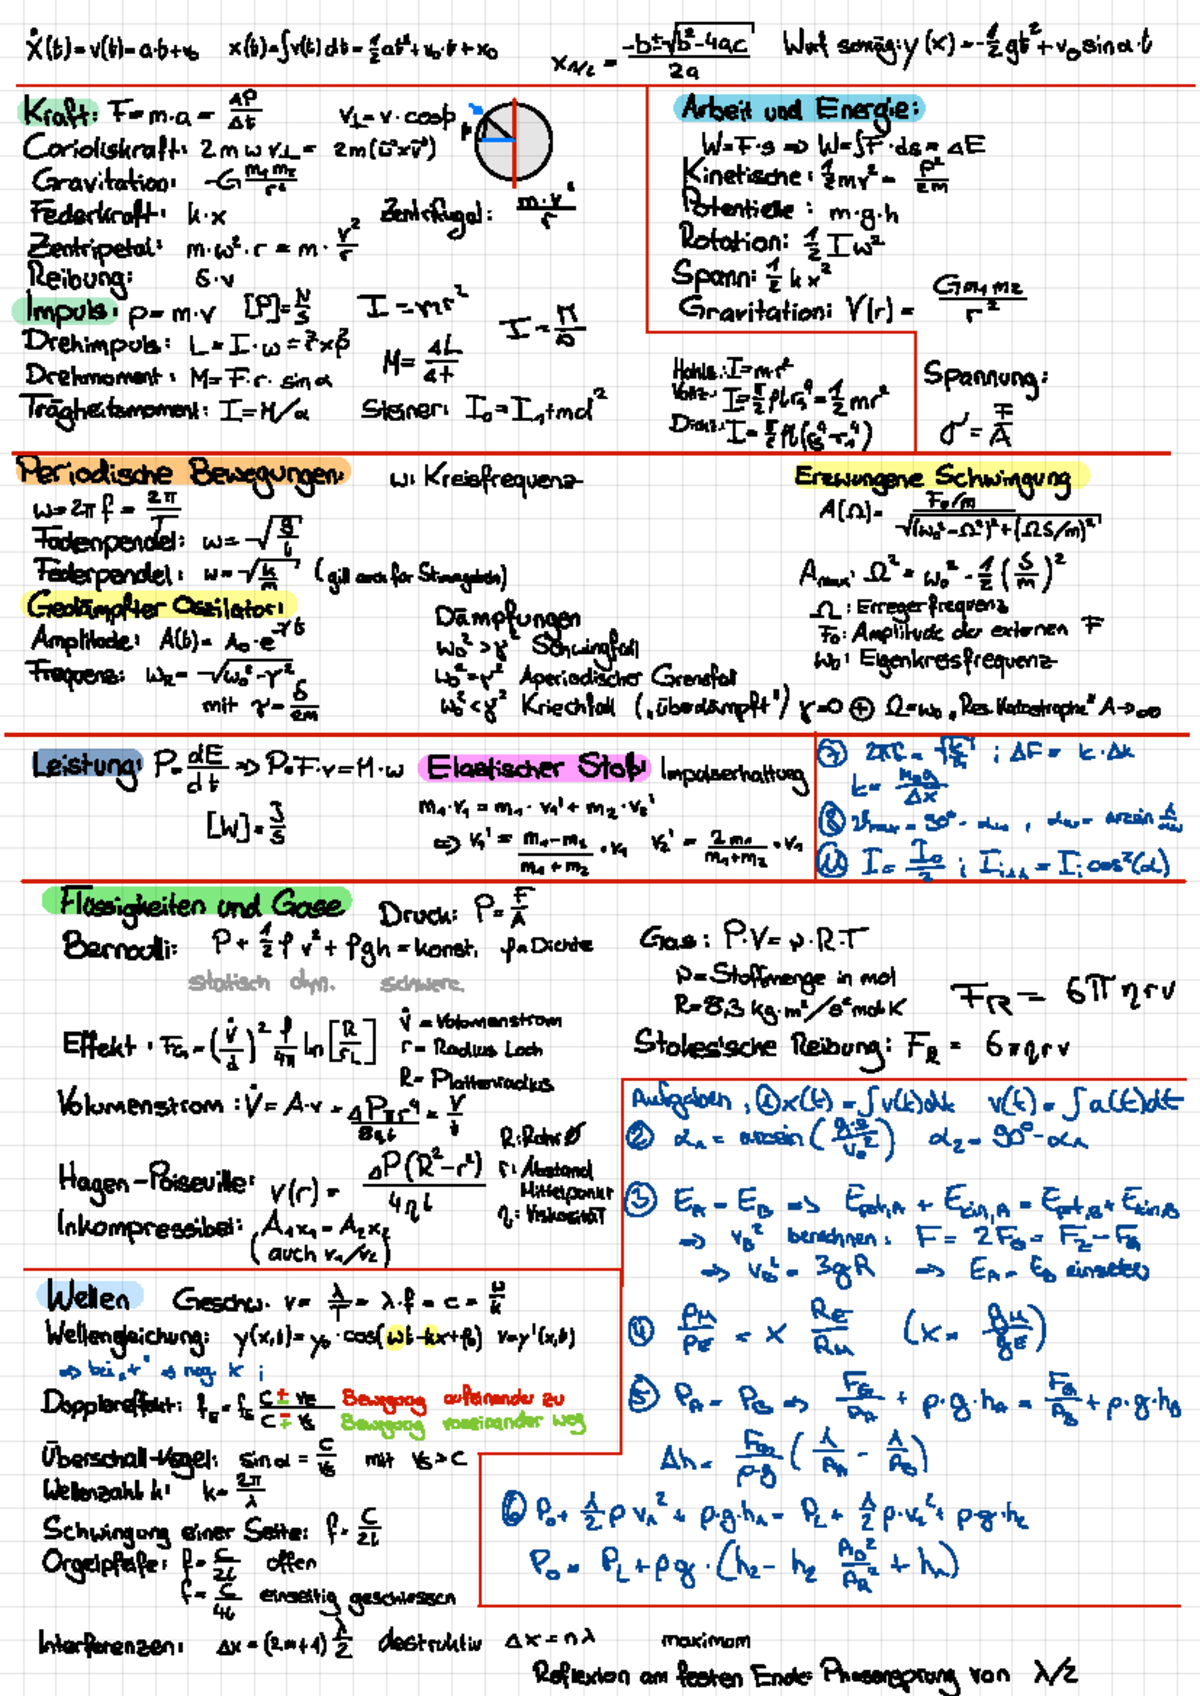 ẋ(t)=v(t)=a·t+v₀   x(t)=∫v(t)dt=½at²+v₀·t+x₀   x₁/₂ = (-b±√(b²-4ac))/2a   Wurf schräg: y(x)=-½gt²+v₀sinα·t
Kraft: F=m·a = ΔP/Δt   v⊥=v·cosφ
Corioliskraft: 2mωv⊥ = 2m(ω⃗×v⃗)
Gravitation: -G m₁m₂/r²
Federkraft: k·x   Zentrifugal: m·v²/r
Zentripetal: m·ω²·r = m·v²/r
Reibung: δ·v
Impuls: p=m·v   [P]=N/s   I=mr²
Drehimpuls: L=I·ω=r⃗×p⃗   M=ΔL/Δt
Drehmoment: M=F·r·sinα
Trägheitsmoment: I=M/α   Steiner: I₀=I₁+md²
Arbeit und Energie:
W=F·s => W=∫F·ds=ΔE
Kinetische: ½mv²= p²/2m
Potentielle: m·g·h
Rotation: ½Iω²
Spann: ½kx²
Gravitation: V(r) = Gm₁m₂/r²
I=mr²
I=π/2 ρlr⁴=½mr²
Spannung:
σ=F/A
Periodische Bewegungen:   ω: Kreisfrequenz
ω=2πf = 2π/T
Fadenpendel: ω=√(g/l)
Federpendel: ω=√(k/m)
Gedämpfter Oszilator:
Amplitude: A(t)= A₀·e^-γt
Frequenz: ω_R=√(ω₀²-γ²)
mit γ=δ/2m
Dämpfungen
ω₀²>γ² Schwingfall
ω₀²=γ² Aperiodischer Grenzfall
ω₀²<γ² Kriechfall („überdämpft") γ=0 ⊕ Ω=ω₀ „Res. Katastrophe" A→∞
Erzwungene Schwingung
A(Ω)= (F₀/m)/√((ω₀²-Ω²)²+(Ωδ/m)²)
A_max: Ω²=ω₀²-½(δ/m)²
Ω: Erregerfrequenz
F₀: Amplitude der externen F
ω₀: Eigenkreisfrequenz
Leistung: P=dE/dt => P=F·v=M·ω
[W]=J/s
Elastischer Stoß: Impulserhaltung
m₁·v₁=m₁·v₁'+m₂·v₂'
=> v₁' = (m₁-m₂)/(m₁+m₂)·v₁   v₂' = 2m₁/(m₁+m₂)·v₁
⑦ ; ΔF = k·Δx
Flüssigkeiten und Gase   Druck: P=F/A
Bernoulli: P+½ρv²+ρgh=konst.   ρ=Dichte
statisch dyn. schwere.
V̇=Volumenstrom
r=Radius Loch
R=Plattenradius
Volumenstrom: V̇=A·v = ΔPπr⁴/8ηl = V/t
Hagen-Poiseuille: v(r) = ΔP(R²-r²)/4ηl
r: Abstand
Mittelpunkt
η: Viskosität
Inkompressibel: A₁x₁=A₂x₂
(auch v₁/v₂)
Gas: P·V=ν·R·T
ν=Stoffmenge in mol
R=8,3 kg·m²/s²molK
F_R = 6πηrv
Stokes'sche Reibung: F_R = 6πηrv
Aufgaben: ① x(t)=∫v(t)dt   v(t)=∫a(t)dt
② α₂=90°-α₁
③ E_A=E_B => E_pot,A+E_kin,A=E_pot,B+E_kin,B
=> v_B² berechnen:
=> v_B²=3gR => E_A=E_B einsetzen
⑤ P_A=P_B =>
⑥ P₀+½ρv₁²+ρ·g·h₁=P_L+½ρ·v₂²+ρ·g·h₂
Wellen   Geschw. v=λ/T=λ·f=c=ω/k
Wellengleichung: y(x,t)=y₀·cos(ωt-kx+φ₀)   v=y'(x,t)
=> bei „+" => neg. k
Dopplereffekt: Bewegung aufeinander zu
Bewegung voneinander weg
Überschall-Kegel: sinα=c/v_s mit v_s>c
Wellenzahl k: k=2π/λ
Schwingung einer Seite: f=c/2L
Orgelpfeife: f=c/2L offen
f=c/4L einseitig geschlossen
Interferenzen: Δx=(2n+1)λ/2 destruktiv   Δx=nλ   maximum
Reflexion am festen Ende: Phasensprung von λ/2